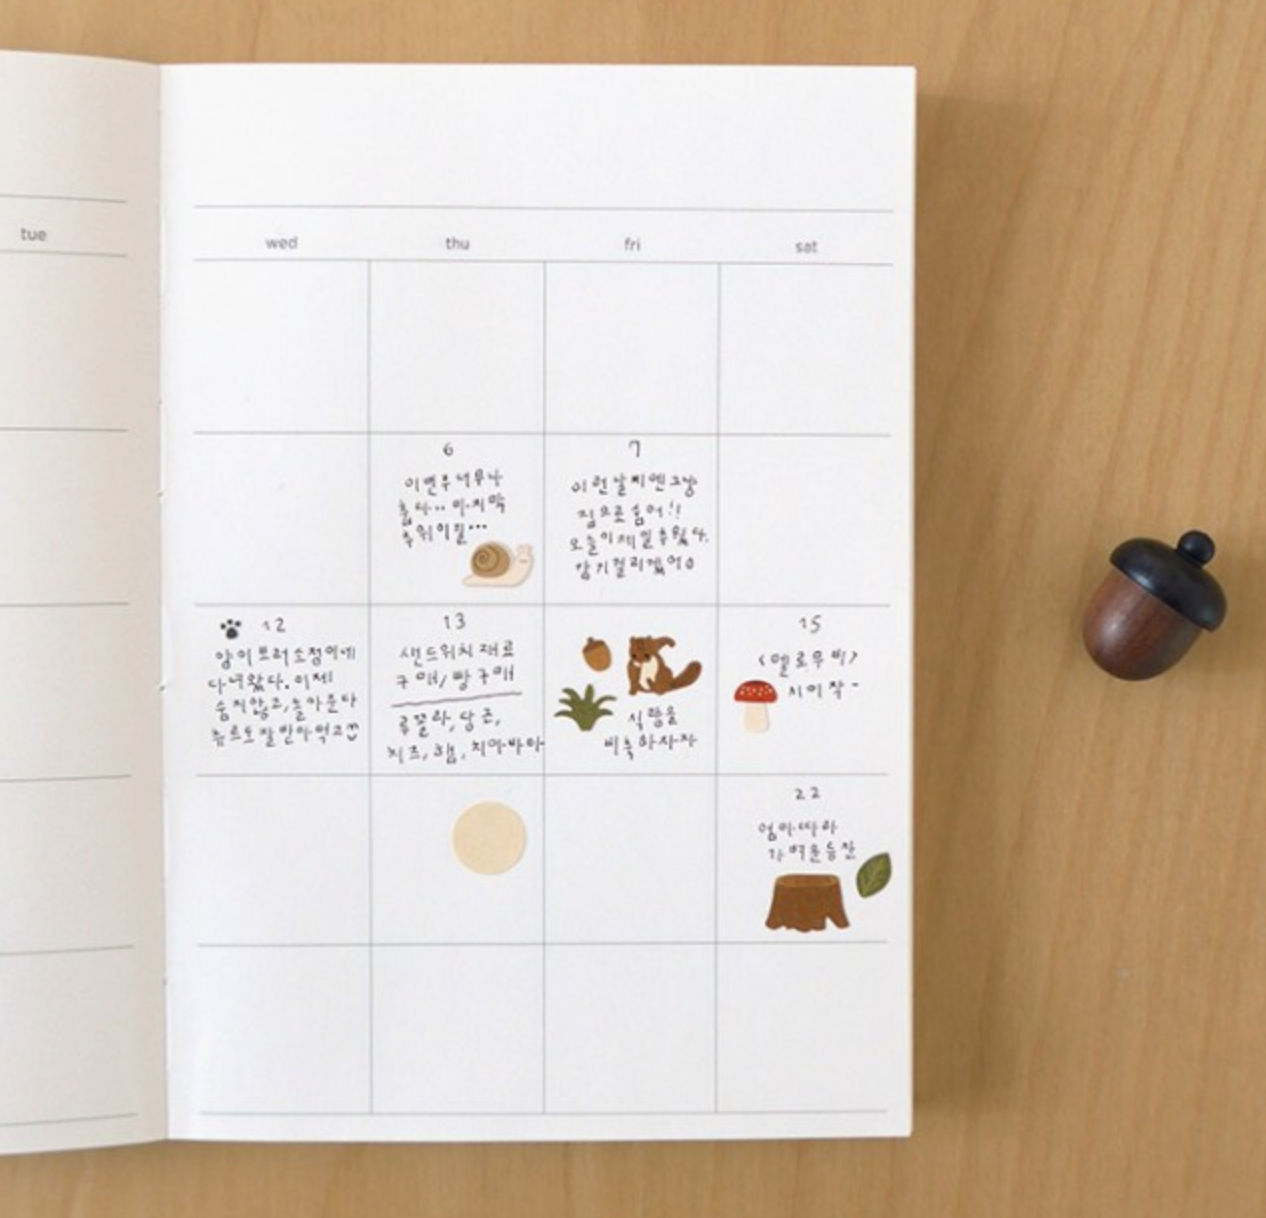 tue
wed
thu
fri
sat
6
이번주 너무나
춥다... 마지막
추위이길...
7
이런 날씨엔 그냥
집으로 숨어!!
오늘이 제일 추웠다.
감기 걸리겠어요
12
양이 보러 소정이네
다녀왔다. 이제
숨지 않고, 돌아온다
츄르도 잘 받아 먹고
13
샌드위치 재료
구매/빵 구매
루꼴라, 당근,
치즈, 햄, 치아바타
식량을
비축하자자
15
<멜로무비>
시이작-
22
엄마따라
가벼운 등산